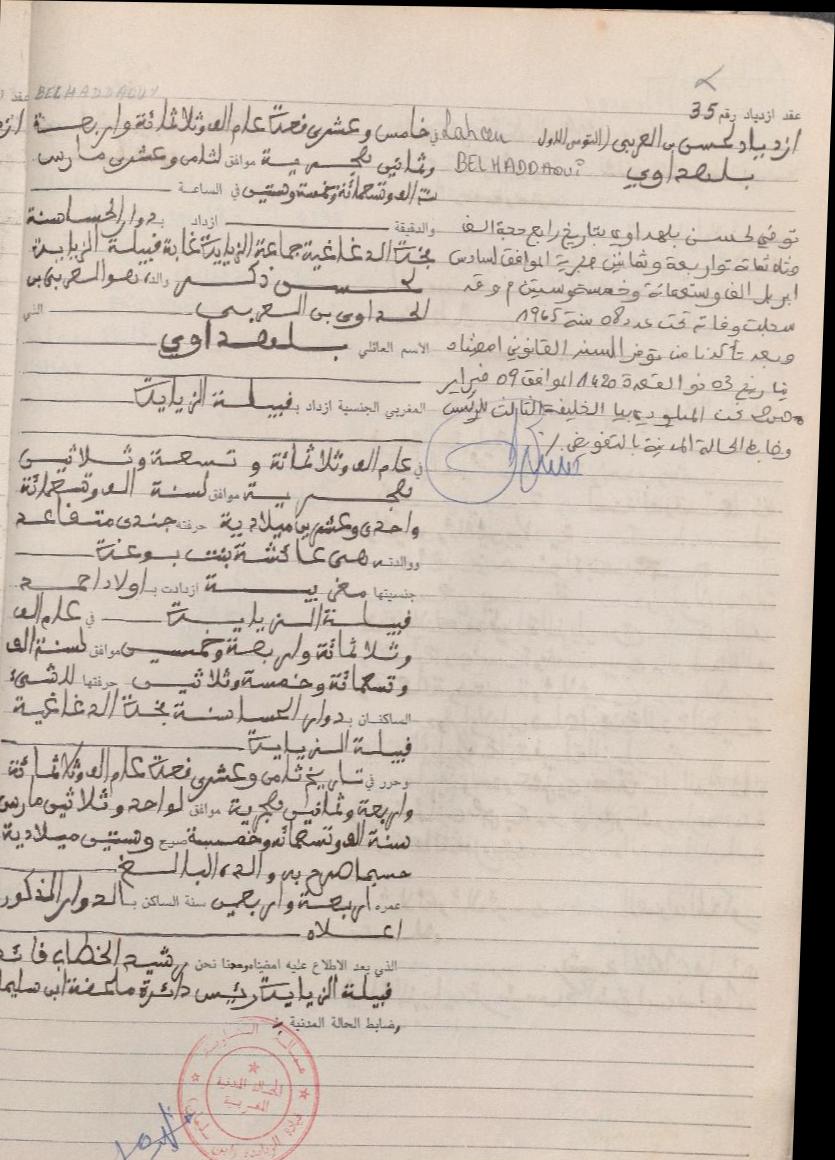 عقد ازدياد رقم 35
ازدياد لحسن بن العربي (التوس الاول
بلهداوي
Lahcen
BELHADDAOUI
توفي لحسن بلهداوي بتاريخ رابع حجة الف
وثلاثمائة واربعة وثمانين هجرية الموافق لسادس
ابريل الف وتسعمائة وخمسة وستين م وقد
سجلت وفاته تحت عدد 08 سنة 1965
وبعد تأكدنا من توفر السند القانوني امضيناه
بتاريخ 03 ذو القعدة 1420 الموافق 09 فبراير
نحن الميلودي الخليفة الثالث للرئيس
وضابط الحالة المدنية بالتفويض ./.
BELHADDAOUI
في خامس وعشري قعدة عام الف وثلاثمائة واربعة
وثمانين هجرية موافق لثامن وعشري مارس
سنة الف وتسعمائة وخمسة وستين في الساعة
والدقيقة ازداد بدوار الحساسنة
فخدة الدغاغية جماعة الزيايدة غابة قبيلة الزيايدة
لحسن ذكر والده هو العربي بن
الحداوي بن العربي الذي
الاسم العائلي بلهداوي
المغربي الجنسية ازداد بـ قبيلة الزيايدة
في عام الف وثلاثمائة وتسعة وثلاثين
هجرية موافق لسنة الف وتسعمائة
واحدى وعشرين ميلادية حرفته جندي متقاعد
ووالدته هي عائشة بنت بوعزة
جنسيتها مغربية ازدادت بـ اولاد احمد
قبيلة الزيايدة في عام الف
وثلاثمائة واربعة وخمسين موافق لسنة الف
وتسعمائة وخمسة وثلاثين حرفتها لا شيء
الساكنان بـ دوار الحساسنة فخدة الدغاغية
قبيلة الزيايدة
وحرر في تاريخ ثامن وعشري قعدة عام الف وثلاثمائة
واربعة وثمانين هجرية موافق لواحد وثلاثين مارس
سنة الف وتسعمائة وخمسة وستين ميلادية
حسبما صرح به والده البالغ
عمره اربعة واربعين سنة الساكن بـ الدوار المذكور
اعلاه
الذي بعد الاطلاع عليه امضيناه معنا نحن رشيد الخطابي قائد
قبيلة الزيايدة رئيس دائرة ملحقة ابن سليمان
وضابط الحالة المدنية
الحالة المدنية
المغربية